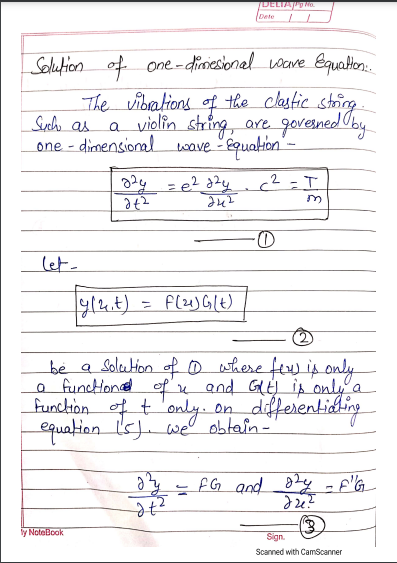 DELTA Pg No.
Date
Solution of one-dimesional wave Equation:.
The vibrations of the clastic string.
Such as a violin string, are governed by
one-dimensional wave-Equation-
∂²y/∂t² = e² ∂²y/∂x² . c² = T/m
①
Let-
y(x,t) = F(x)G(t)
②
be a Solution of ① where f(x) is only
a function of x and G(t) is only a
function of t only. on differentiating
equation (5). we obtain-
∂²y/∂t² = FG and ∂²y/∂x² = F''G
③
ty NoteBook
Sign.
Scanned with CamScanner